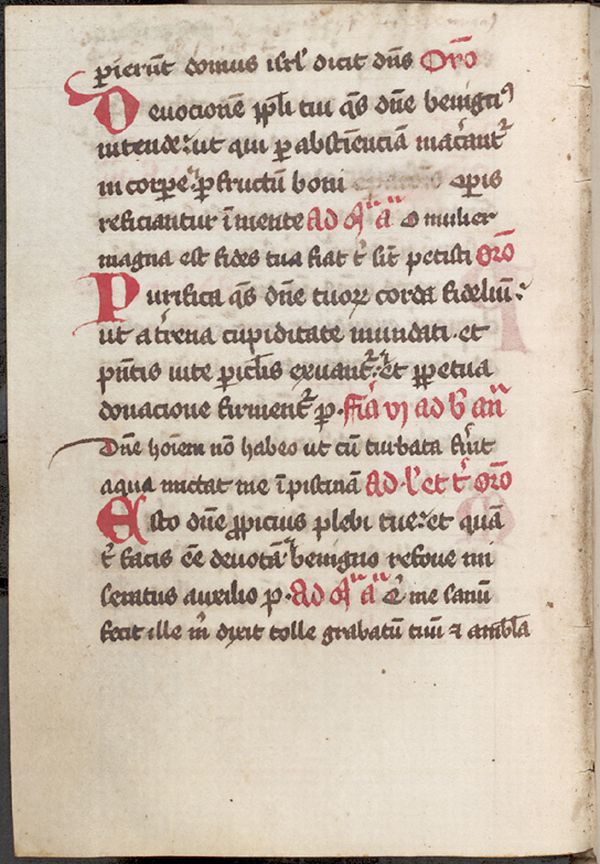 perierūt domus isrl' dicit dn̄s Orō
Deuocionē ppl̄i tui q̄s dn̄e benign9
intende. ut qui p abstīenciā mac̄ant᷑
in corpe. p fructū boni opis
reficiantur ī mente Ad mag̅ a̅ O mulier
magna est fides tua fiat t͛ sic̄ petisti Orō
Purifica q̄s dn̄e tuoꝝ corda fideliū.
ut a t͛rena cupiditate mundati. et
pn̄tis uite pic̄lis exuant᷑. et ppetua
donacione firment᷑ p. F͛ia vj ad b̄ an̄
Dn̄e hoīem nō habeo ut cū turbata fu͛it
aqua mittat me ī piscinā Ad l' et t͛ Orō
Esto dn̄e ppicius plebi tue. et quā
t͛ facis ēē deuotā. benigno refoue mi
seratus auxilio p. Ad mag̅ a̅ Q͛ me sanū
fecit ille m͛ dixit tolle grabatū tuū ⁊ ambl̄a